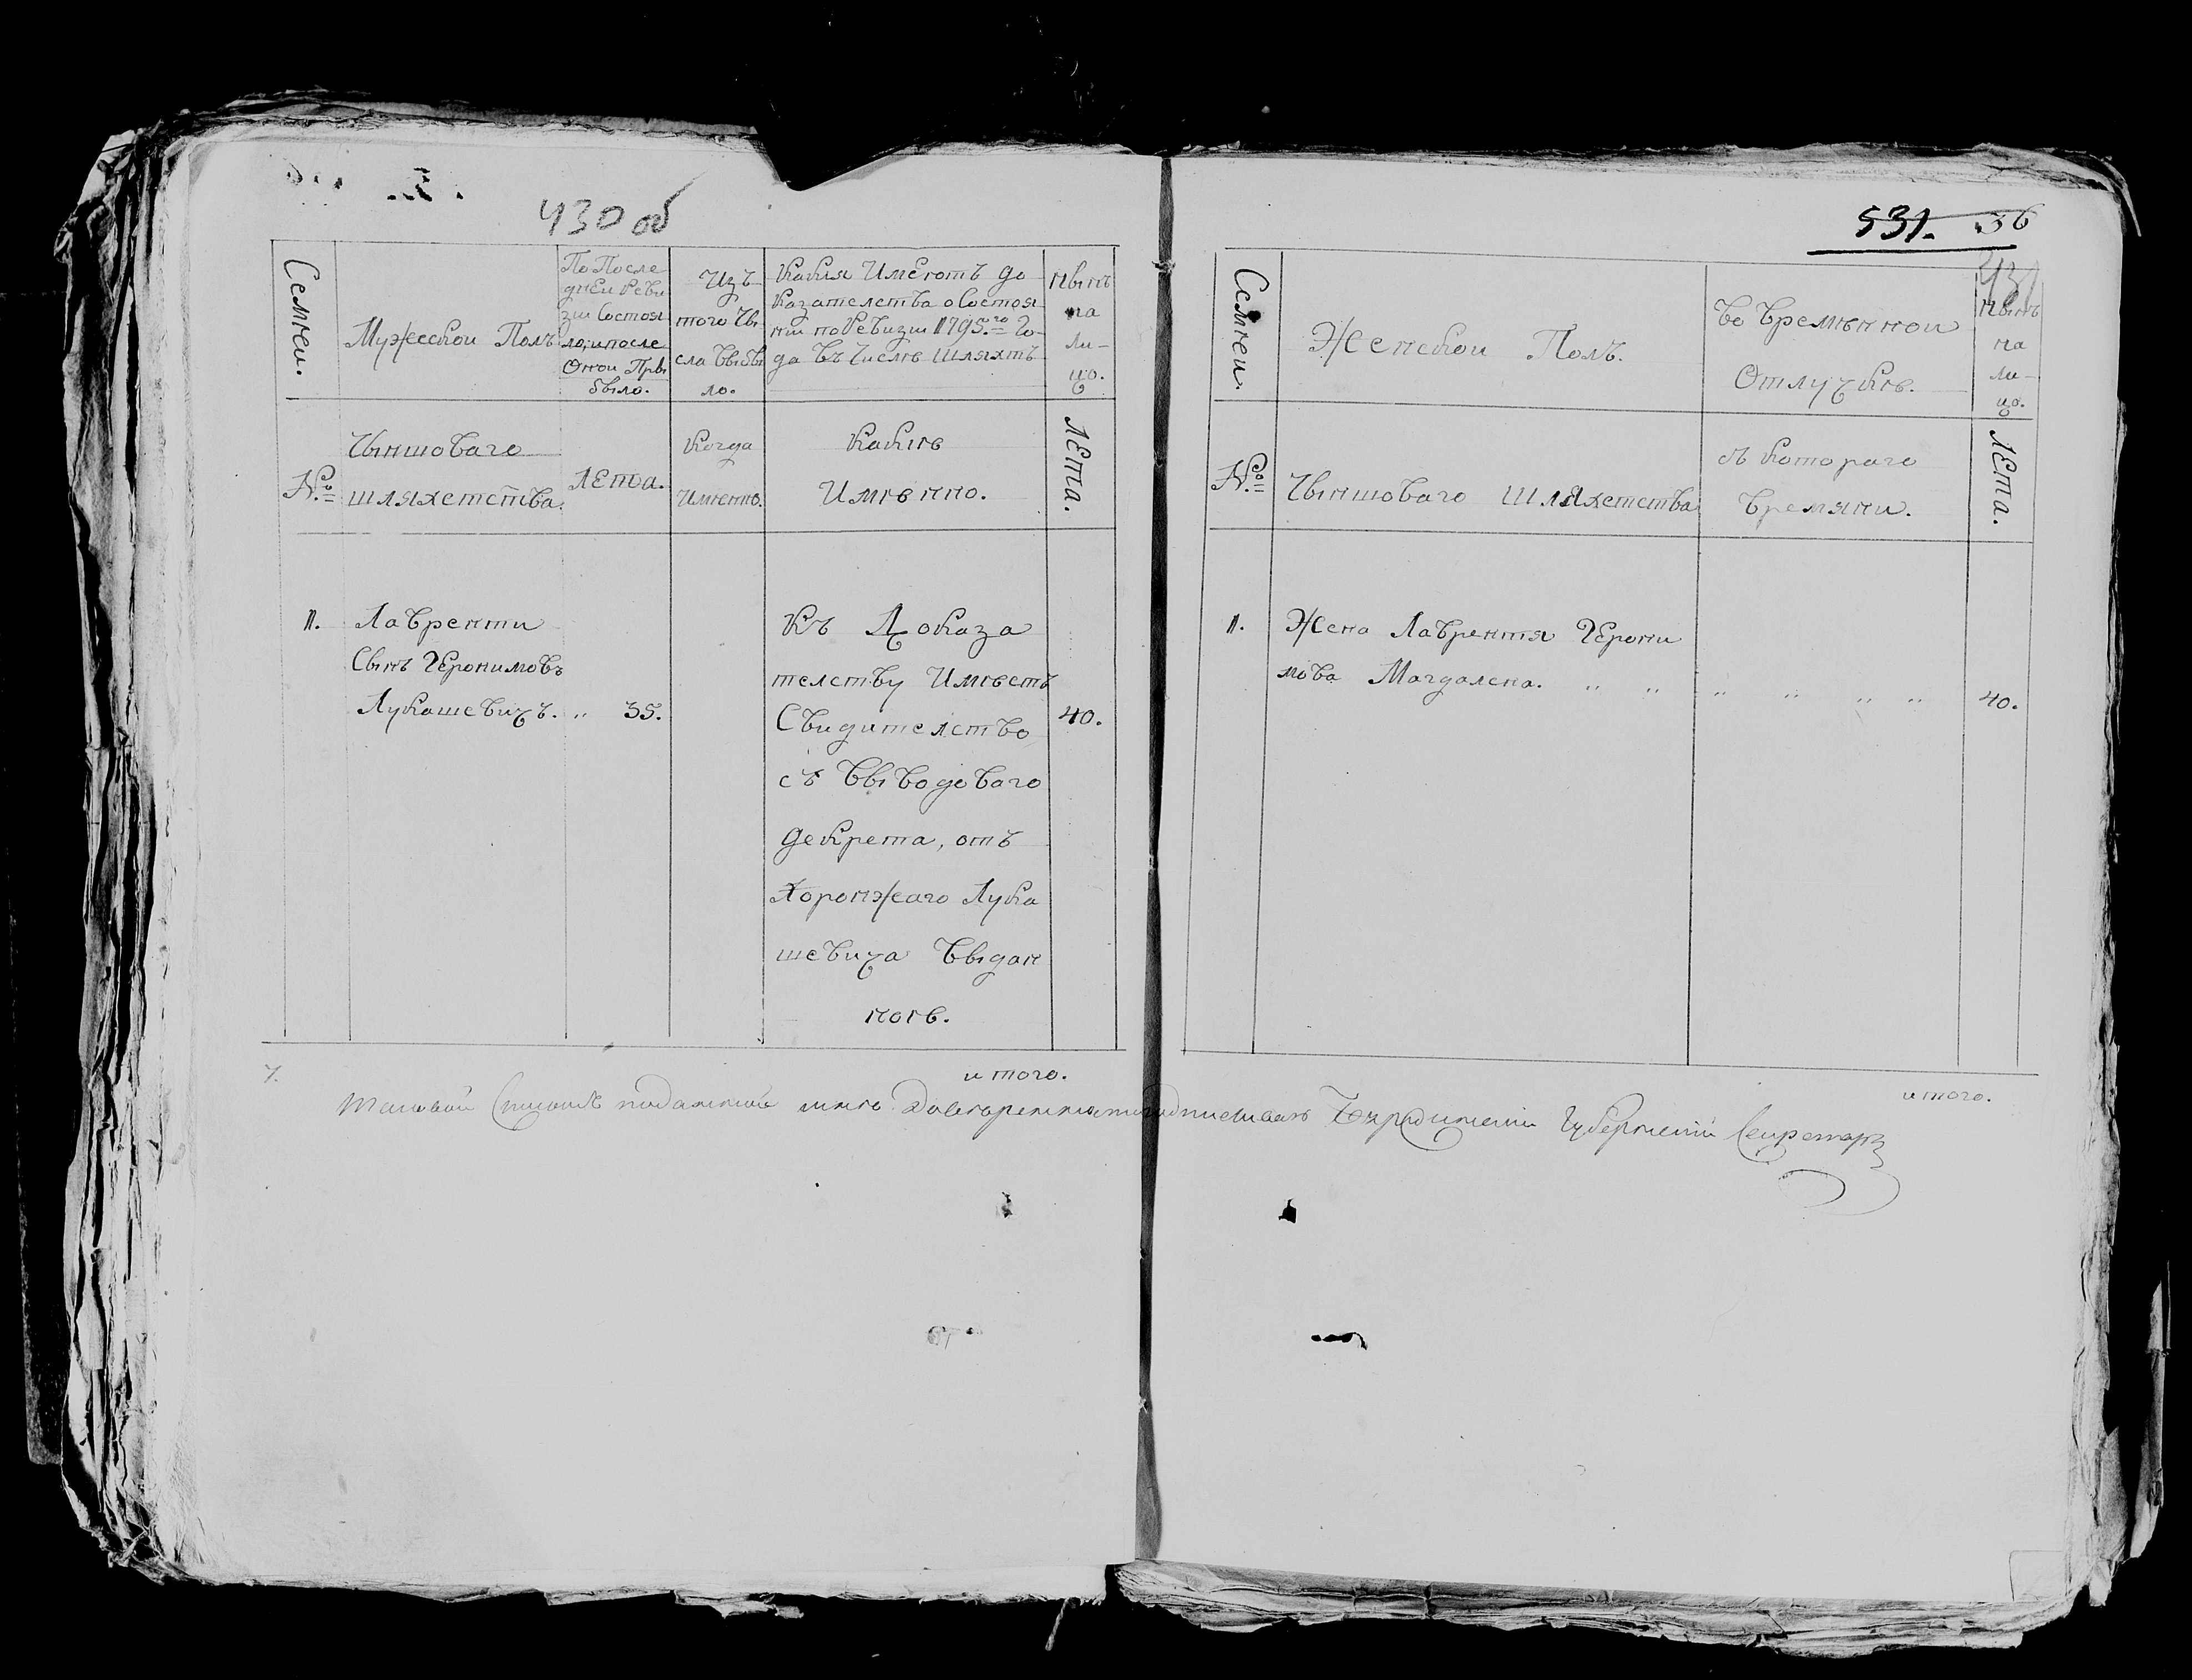 430 об
Семьи.
Мужескои Полъ
По После
днеи Реви
зіи Состоя
ло, и после
Онои При
было.
Изъ
того Чи
сла Выбы
ло.
Какія Имеютъ до
казателства о Состоя
ніи по Ревизіи 1795.го Го-
да въ Числѣ Шляхтъ
Нынѣ
на
ли-
цо.
№
Чыншоваго
шляхетства.
Лета.
Когда
Имянно.
Какіе
Имѣнно.
Лета.
1.
Лаврентіи
Сынъ Геронимовъ
Лукашевичъ. „ 35.
Къ Доказа
телству Имѣетъ
Свидителство
съ Выводоваго
декрета, отъ
Хоронжаго Лука
шевича Выдан
ное.
40.
итого.
531. 36
431
Семьи.
Женскои Полъ.
Во Временнои
Отлучкѣ.
Нынѣ
на
ли-
цо.
№
Чыншоваго Шляхетства
съ котораго
Времяни.
Лета.
1.
Жена Лаврентія Герони
мова Магдалена. „ „ „ „ „ „
40.
итого.
Таковой Списокъ поданной мнѣ Губернскій Секретарь